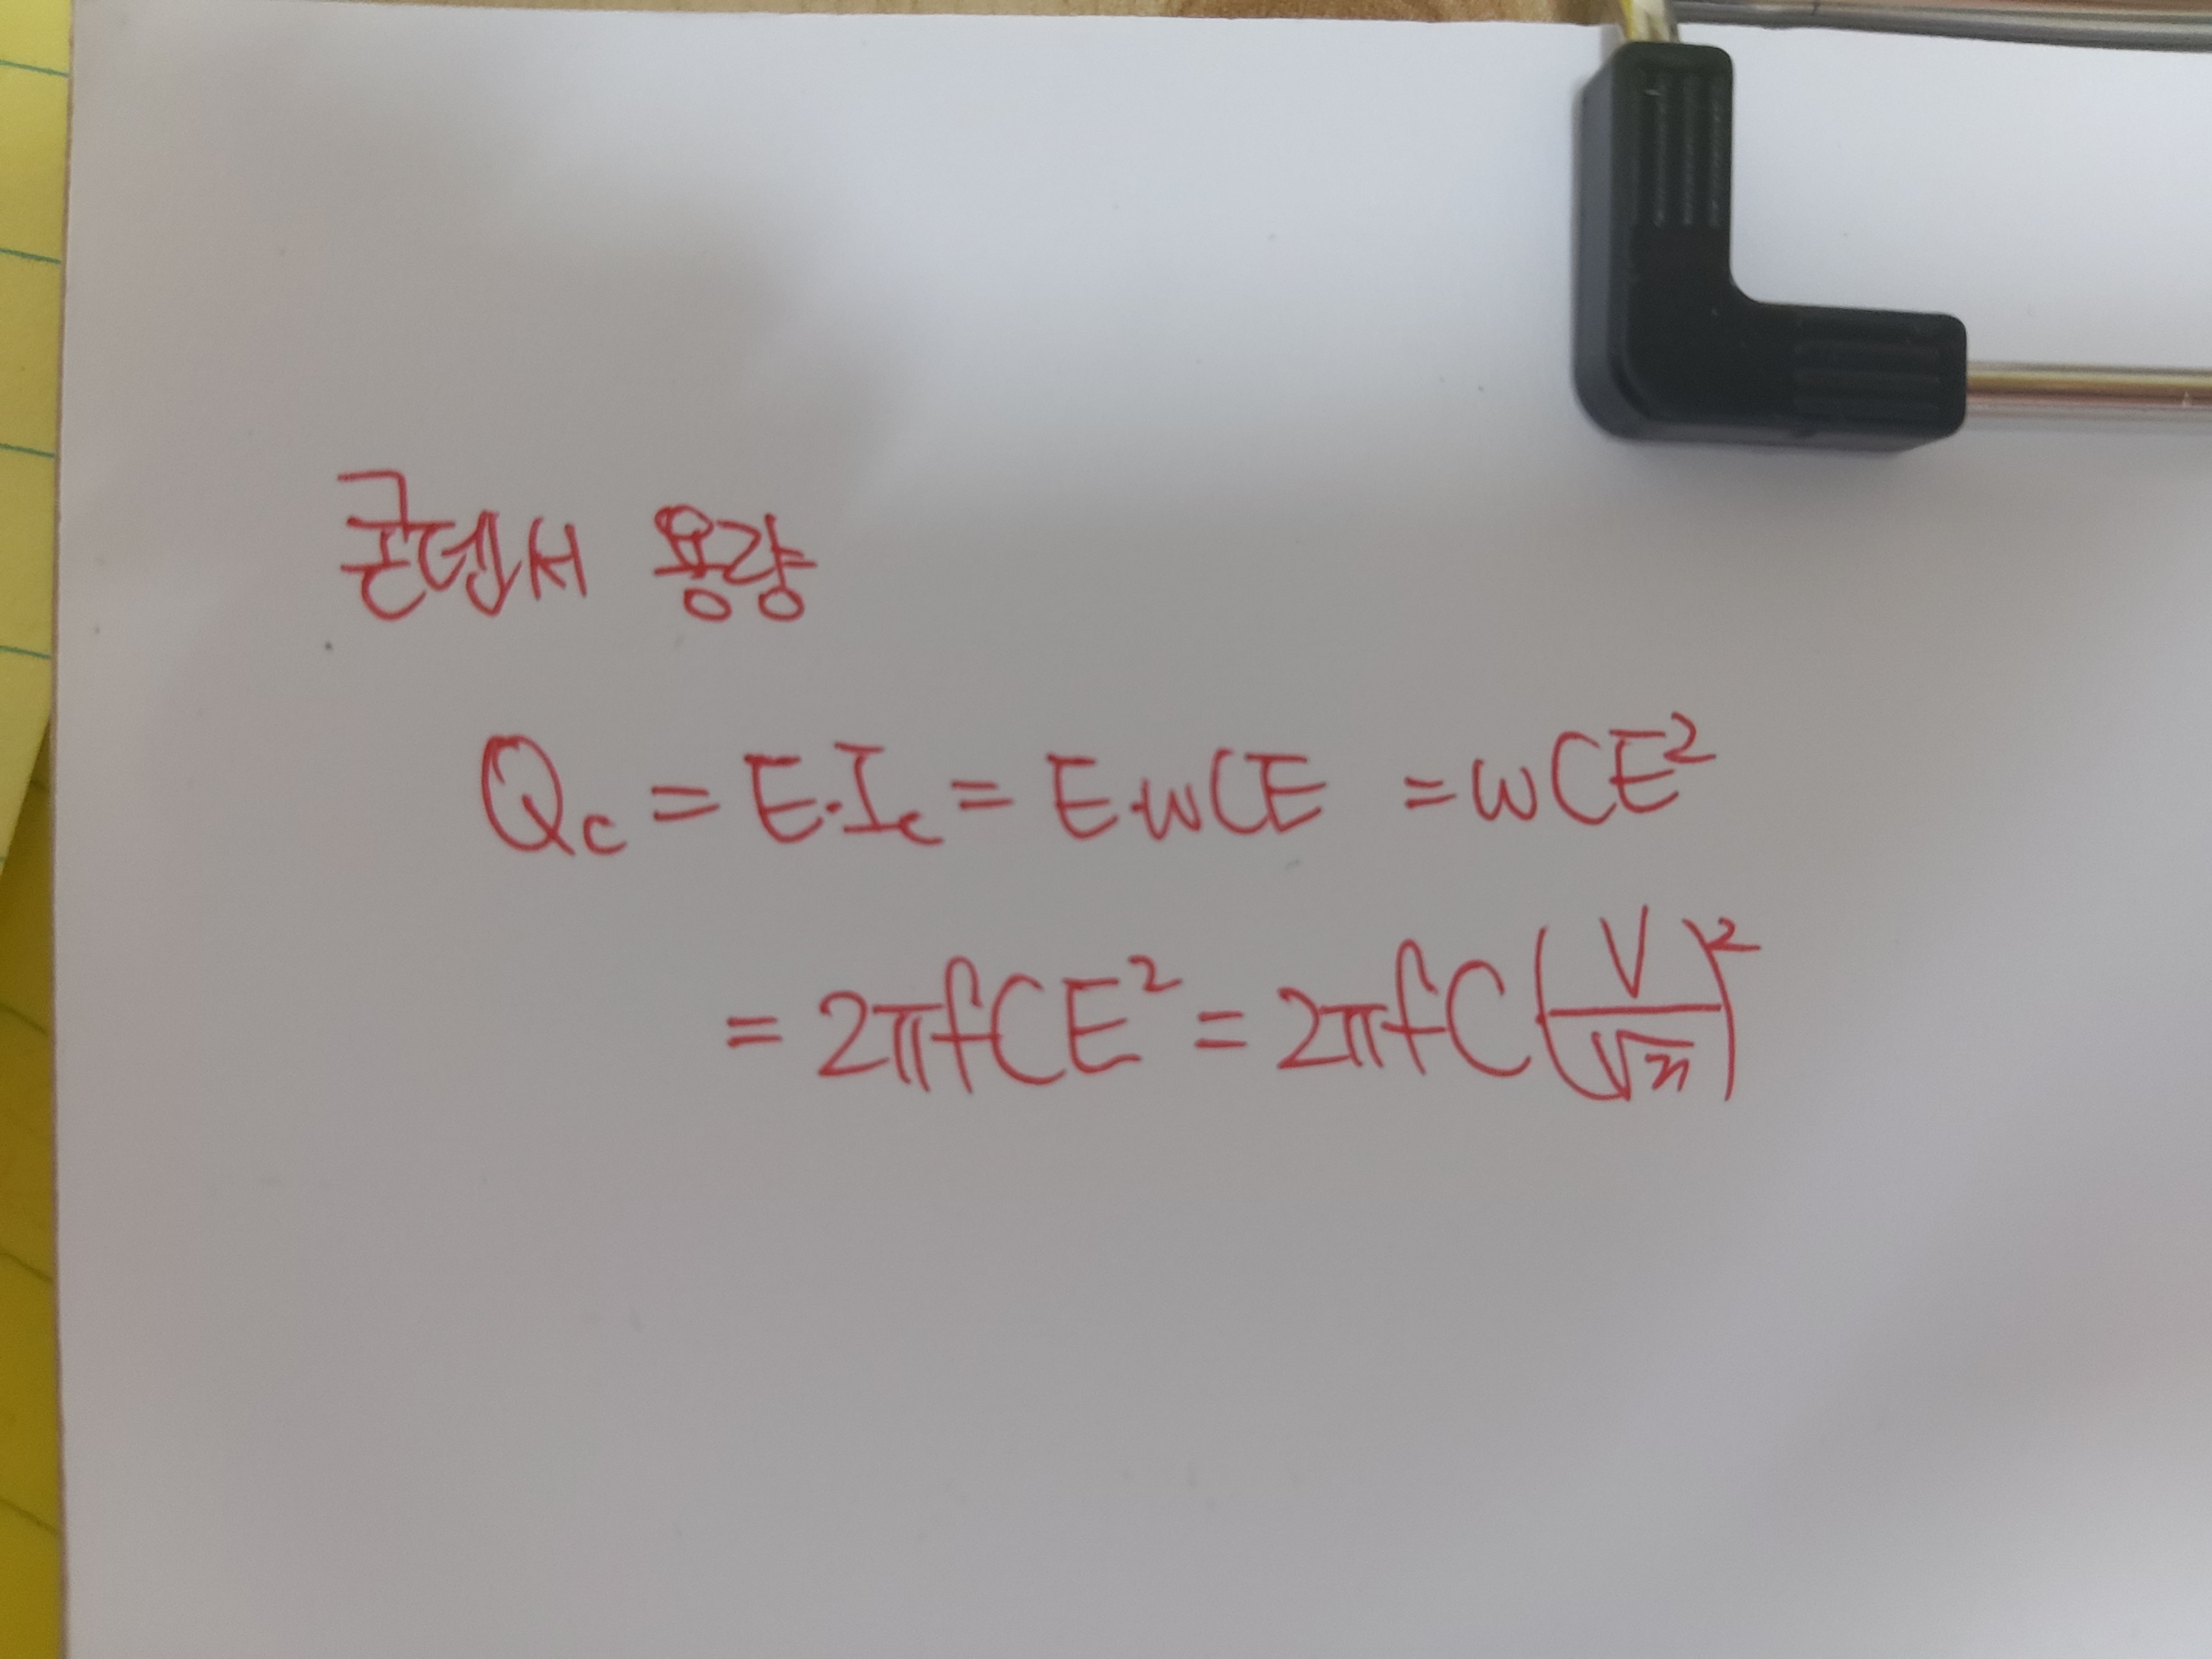 콘덴서 용량
Qc = E·Ic = E·wCE = wCE²
= 2πfCE² = 2πfC(V/√3)²